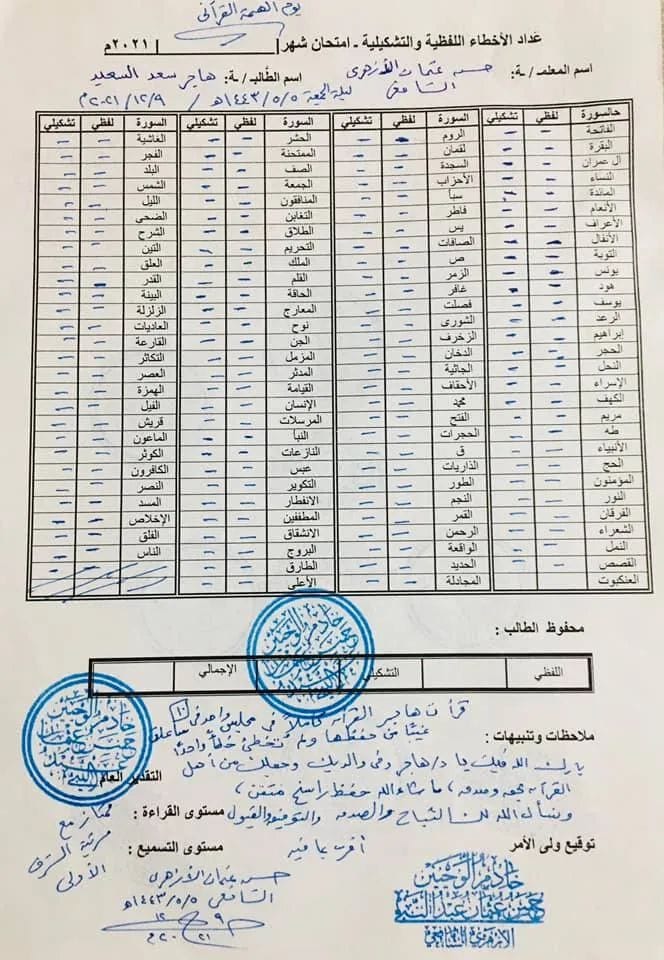 يوم الهمة القرآني
عداد الأخطاء اللفظية والتشكيلية ـ امتحان شهر|ـــــــــــــــــ| ٢٠٢١م
اسم المعلمـ / ـة: حسن عثمان الأزهري الشافعي اسم الطالبـ / ـة: هاجر سعد السعيد
ليلة الجمعة ١٤٤٣/٥/٥هـ / ٢٠٢١/١٢/٩م
السورة لفظي تشكيلي السورة لفظي تشكيلي السورة لفظي تشكيلي السورة لفظي تشكيلي
الفاتحة – – الروم – – الحشر – – الغاشية – –
البقرة – – لقمان – – الممتحنة – – الفجر – –
آل عمران – – السجدة – – الصف – – البلد – –
النساء – – الأحزاب – – الجمعة – – الشمس – –
المائدة – – سبأ – – المنافقون – – الليل – –
الأنعام – – فاطر – – التغابن – – الضحى – –
الأعراف – – يس – – الطلاق – – الشرح – –
الأنفال – – الصافات – – التحريم – – التين – –
التوبة – – ص – – الملك – – العلق – –
يونس – – الزمر – – القلم – – القدر – –
هود – – غافر – – الحاقة – – البينة – –
يوسف – – فصلت – – المعارج – – الزلزلة – –
الرعد – – الشورى – – نوح – – العاديات – –
إبراهيم – – الزخرف – – الجن – – القارعة – –
الحجر – – الدخان – – المزمل – – التكاثر – –
النحل – – الجاثية – – المدثر – – العصر – –
الإسراء – – الأحقاف – – القيامة – – الهمزة – –
الكهف – – محمد – – الإنسان – – الفيل – –
مريم – – الفتح – – المرسلات – – قريش – –
طه – – الحجرات – – النبأ – – الماعون – –
الأنبياء – – ق – – النازعات – – الكوثر – –
الحج – – الذاريات – – عبس – – الكافرون – –
المؤمنون – – الطور – – التكوير – – النصر – –
النور – – النجم – – الانفطار – – المسد – –
الفرقان – – القمر – – المطففين – – الإخلاص – –
الشعراء – – الرحمن – – الانشقاق – – الفلق – –
النمل – – الواقعة – – البروج – – الناس – –
القصص – – الحديد – – الطارق – –
العنكبوت – – المجادلة – – الأعلى – –
محفوظ الطالب :
اللفظي التشكيلي الإجمالي
قرأت هاجر القرآن كاملاً في مجلس واحد في ١٠
ملاحظات وتنبيهات : غيبًا من حفظها ولم تخطئ خطأً واحدًا
بارك الله فيك يا د/ هاجر وفي والديك وجعلك من أهل
القرآن بحق وصدق، ما شاء الله حفظ راسخ متقن،
ونسأل الله لك الثبات والصدق والتوفيق والقبول
التقدير العام :
ممتاز مع مرتبة الشرف الأولى
مستوى القراءة :
توقيع ولى الأمر أقر بما فيه مستوى التسميع :
حسن عثمان الأزهري
الشافعي ١٤٤٣/٥/٥هـ
٩ ١٢ ٢٠٢١م
خادم الوحيين
حسن عثمان عبد النبي
الأزهري الشافعي